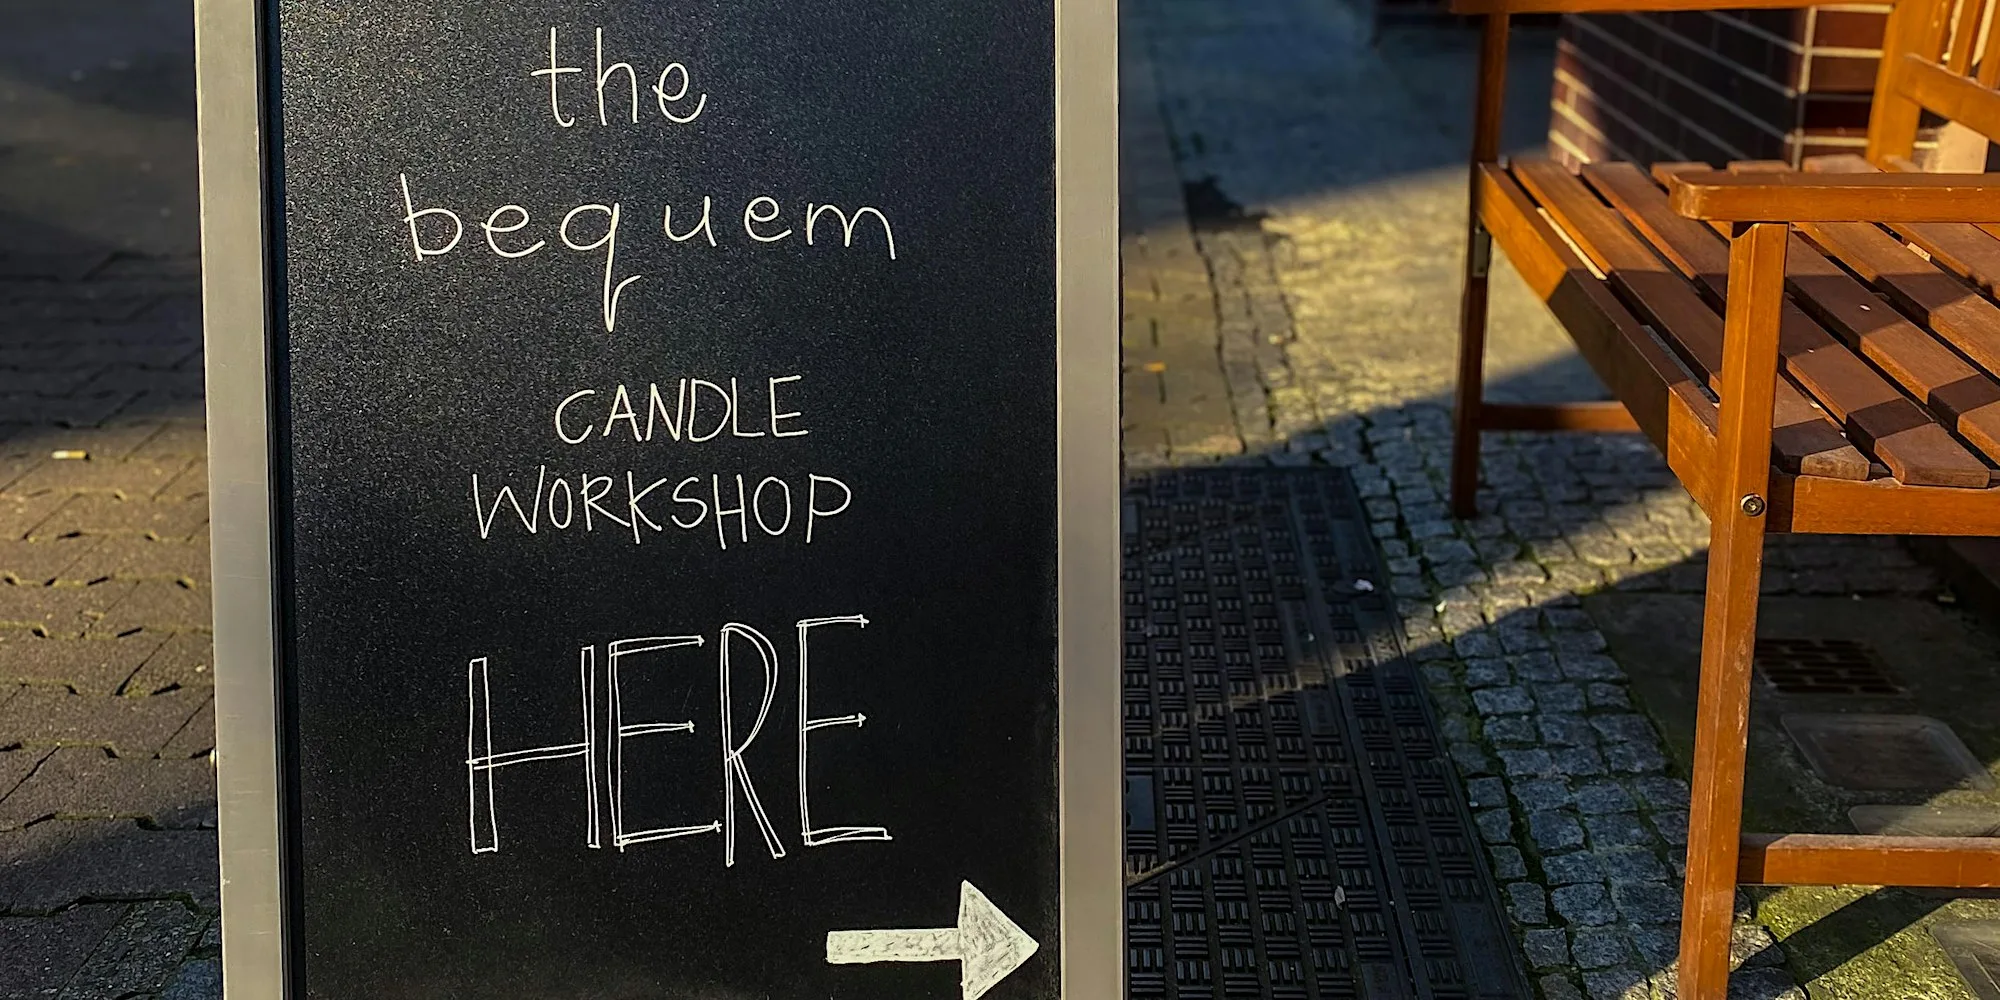 the
bequem
CANDLE
WORKSHOP
HERE